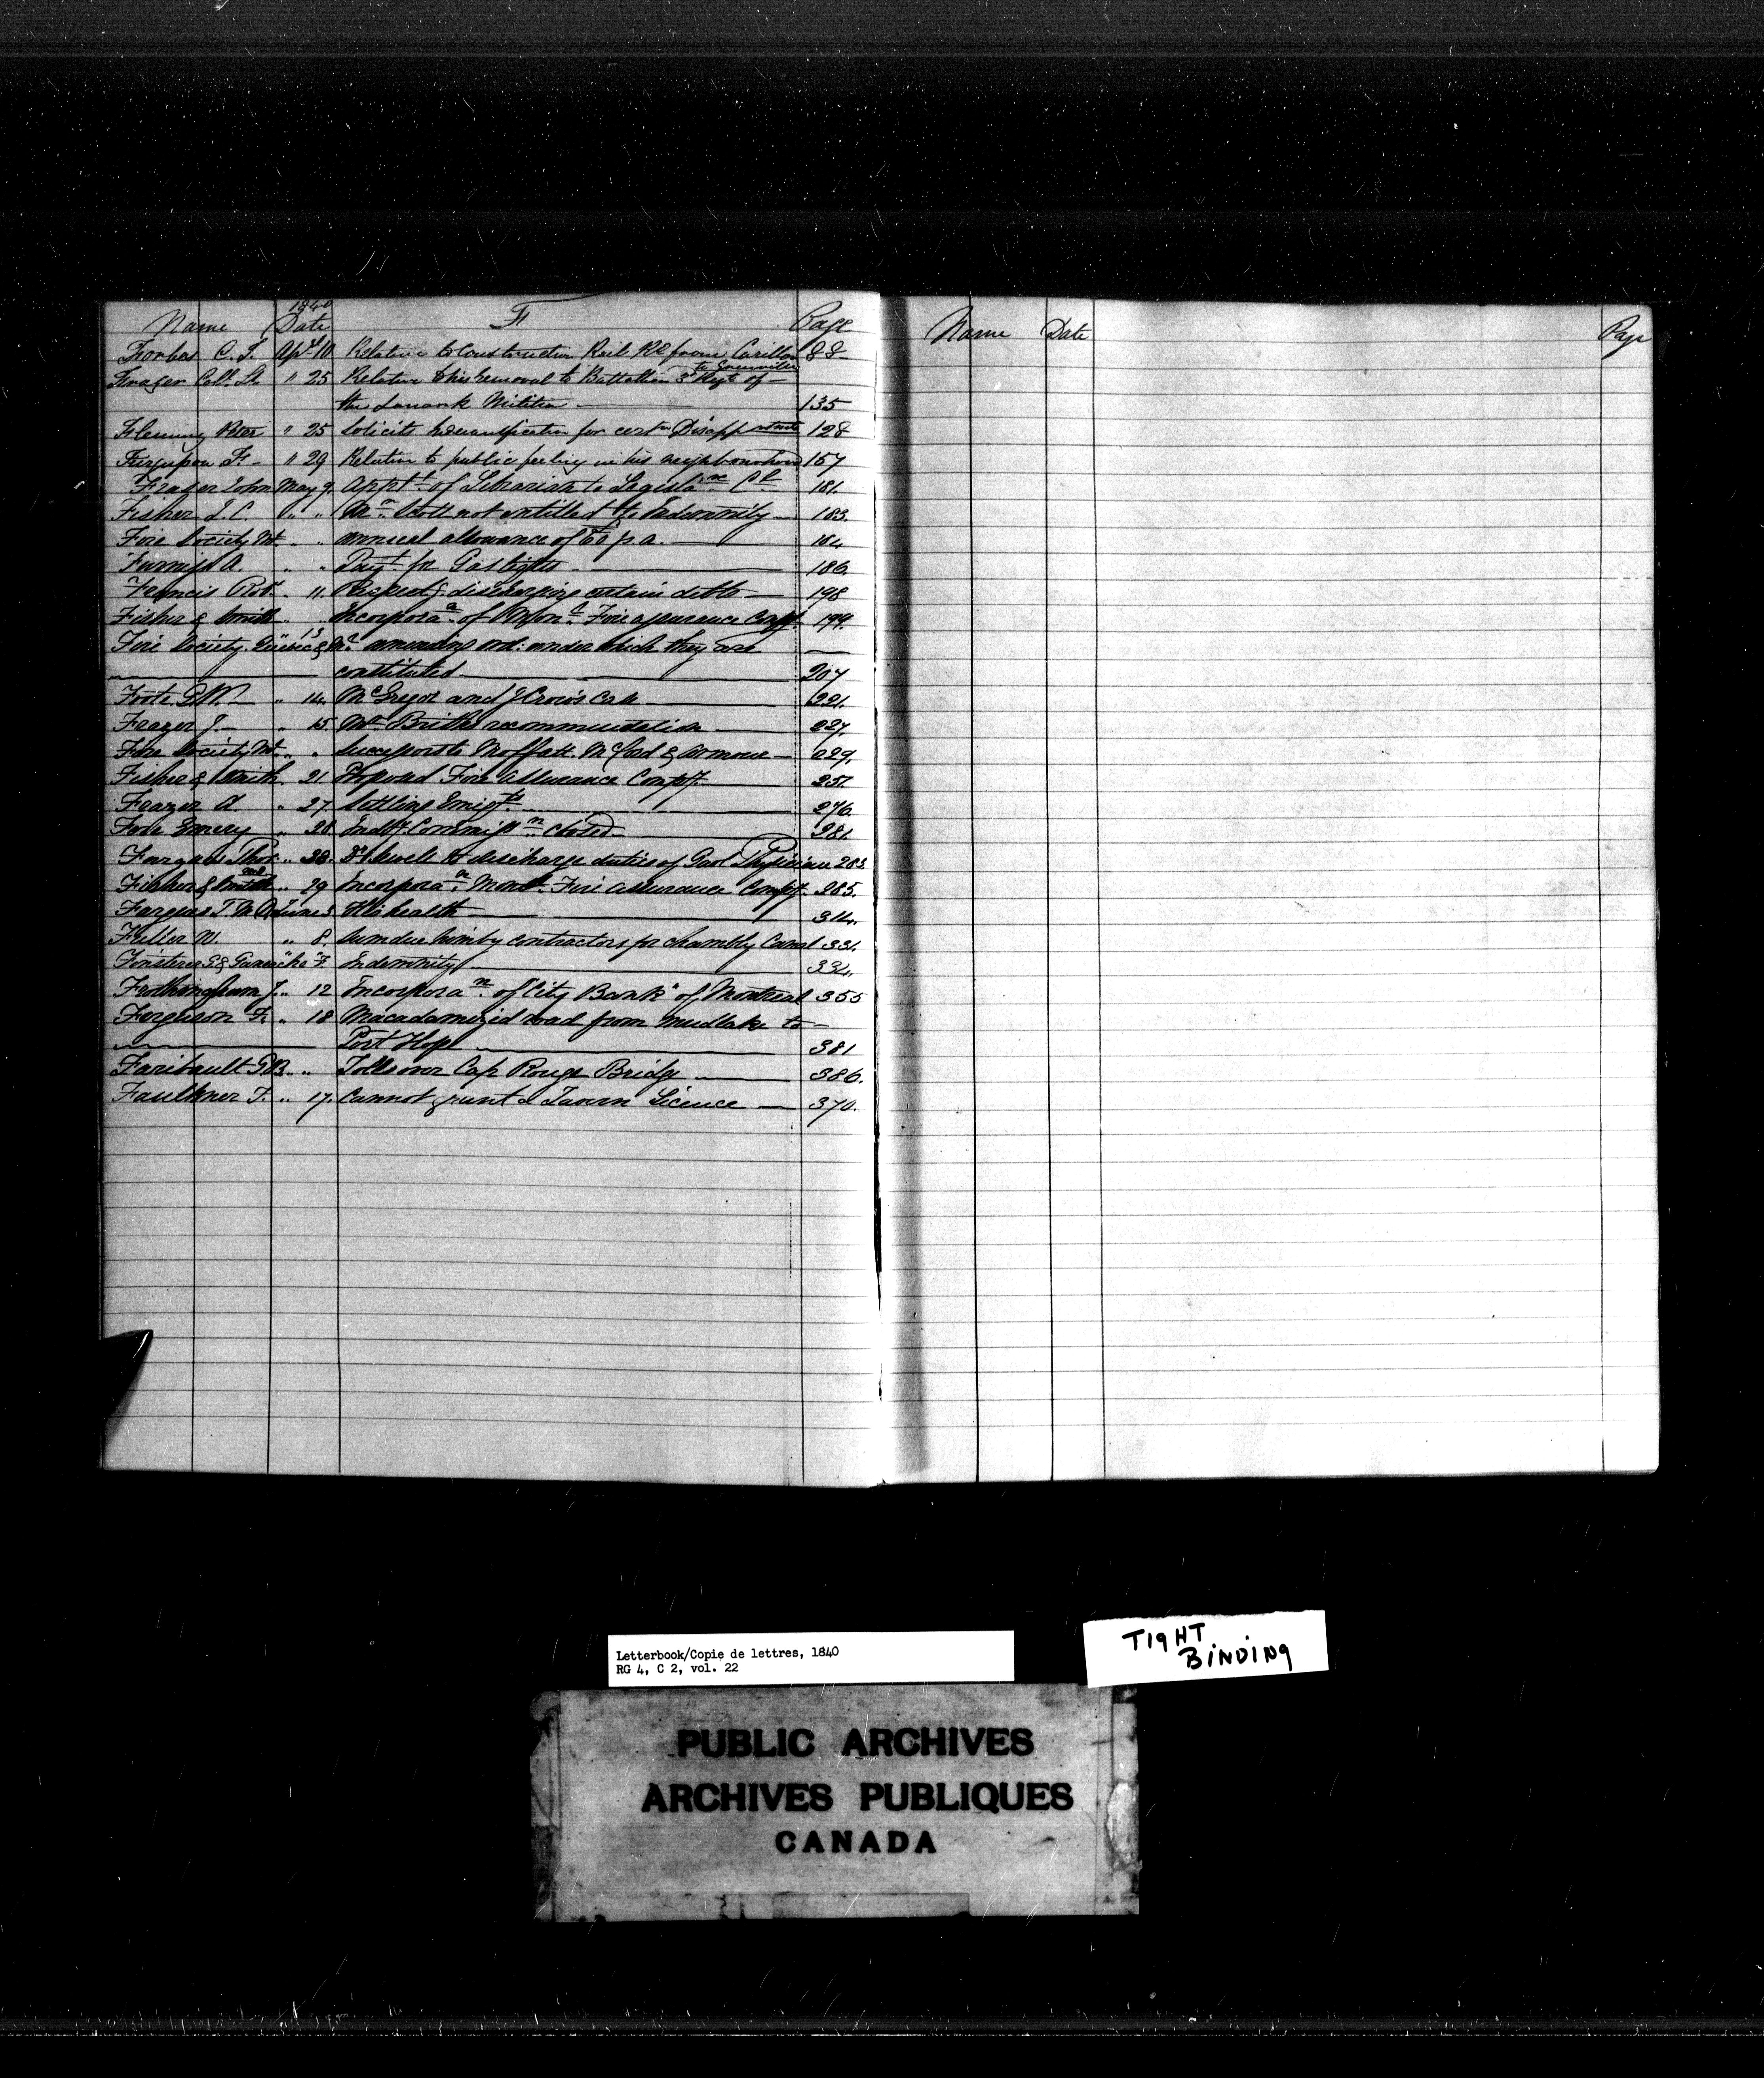 1840
Name Date F Page
Forbes C. J. Apl 10 Relative to Construction Rail Rd from Carillon 88
to Grenville
Fraser Coll. " 25 Relative to his removal to Battallion 3d Regt of
the Lanark Militia 135
Fleming Peter " 25 Solicits for certn 128
Fergusson F. " 29 Relative to public feeling in his neighbourhood 157
Fraser John May 9. Appt of Librarian to Legisla 181.
Fisher J. C. " " Scott not entitled to Indemnity 183.
Fire Society Mt. " " annual allowance of p a. 184
Furniss A. " " Payt for Gas lights 186.
Francis Robt " 11. Respectg discharging certain debts 198
Fisher & Smith " " Incorpora of Fire assurance Compy. 199.
Fire Society. Quebec & 13 amending ord: under which they are
constituted 207
Foote G. W. " 14. McGregor and case 221.
Frazer J. " 15. recommendation 227.
Fire Society Mt. " " Successors to Moffatt McCord & Armour 229.
Fisher & Smith. " 21 Proposed Fire Assurance Compy. 251.
Frazer A " 27. Settling Emigts 276.
Emery " 28. Commissn closed 281.
Fargues Thos. " 28. to discharge duties of Gaol Physician 283.
Fisher & Smith " 29 Incorporan Mont. Fire assurance Compy. 285.
Fargues T. June 5. His health 314.
Fuller W. " 8. Sum due him by contractors for Chambly Canal 331.
Indemnity 334.
Frothingham J. " 12 Incorporan. of "City Bank" of Montreal 355
Ferguson F. " 18 Macadamized road from Mudlake to
Port Hope 381
Faribault G. B. " " Tolls over Cap Rouge Bridge 386.
Faulkner F. " 17. Cannot grant a Tavern Licence 370.
Name Date Page
Letterbook/Copie de lettres, 1840
RG 4, C 2, vol. 22
TIGHT
BINDING
PUBLIC ARCHIVES
ARCHIVES PUBLIQUES
CANADA